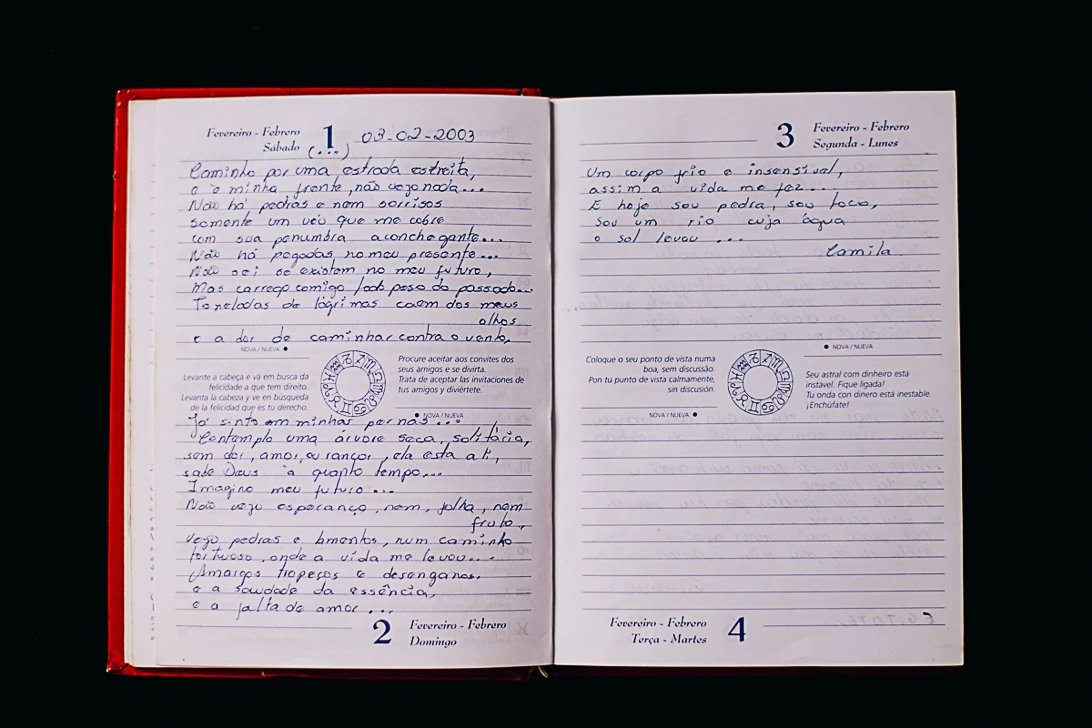 Fevereiro - Febrero
Sábado
1
03-02-2003
(...)
Caminho por uma estrada estreita,
e à minha frente, não vejo nada...
Não há pedras e nem sorrisos
somente um véu que me cobre
com sua penumbra aconchegante...
Não há pegadas no meu presente...
Não sei se existem no meu futuro,
Mas carrego comigo todo peso do passado...
Toneladas de lágrimas caem dos meus
olhos
e a dor de caminhar contra o vento,
NOVA / NUEVA ●
Levante a cabeça e vá em busca da
felicidade a que tem direito.
Levanta la cabeza y ve en búsqueda
de la felicidad que es tu derecho.
Procure aceitar aos convites dos
seus amigos e se divirta.
Trata de aceptar las invitaciones de
tus amigos y diviértete.
● NOVA / NUEVA
Já sinto em minhas pernas...
Contemplo uma árvore seca, solitária,
sem dor, amor, ou rancor, ela esta ali,
sabe Deus à quanto tempo...
Imagino meu futuro...
Não vejo esperança, nem, folha, nem
fruto,
vejo pedras e lamentos, num caminho
tortuoso, onde a vida me levou...
Amargos tropeços e desenganos,
e a saudade da essência,
e a falta de amor...
2
Fevereiro - Febrero
Domingo
3
Fevereiro - Febrero
Segunda - Lunes
Um corpo frio e insensível,
assim a vida me fez...,
E hoje sou pedra, sou toco,
Sou um rio cuja água
o sol levou ...
Camila
Coloque o seu ponto de vista numa
boa, sem discussão.
Pon tu punto de vista calmamente,
sin discusión.
NOVA / NUEVA ●
● NOVA / NUEVA
Seu astral com dinheiro está
instável. Fique ligada!
Tu onda con dinero está inestable.
¡Enchúfate!
Fevereiro - Febrero
Terça - Martes
4